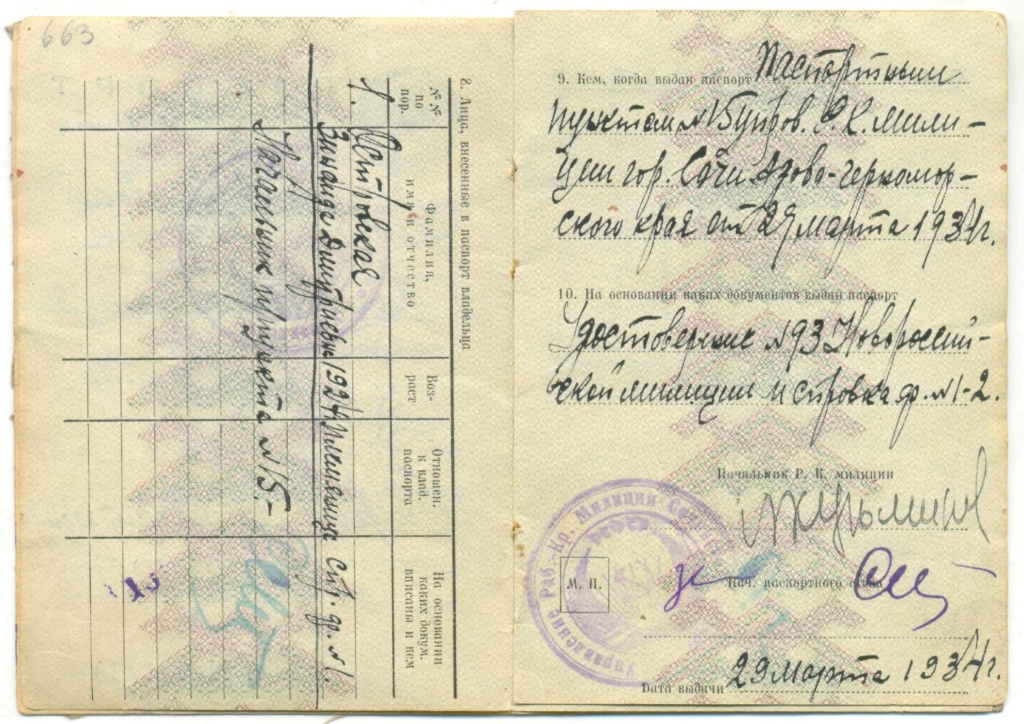 663
8. Лица, внесенные в паспорт владельца
№ № по пор.
Фамилия, имя и отчество
Воз- раст
Отношен. к влад. паспорта
На основании каких докум. вписаны и кем
1. Островская
Зинаида Дмитриевна 1924 племянница Спр. ф. №1.
Начальник п/пункта №15.-
9. Кем, когда выдан паспорт Паспортным
пунктом №15 Управ. Р.К. мили-
ции гор. Сочи Азово-Черномор-
ского края от 29 марта 1934 г.
10. На основании каких документов выдан паспорт
Удостоверение №93 Новороссий-
ской милиции и справка ф. №1-2.
Начальник Р. К. милиции
М. П.
Нач. паспортного стола
Управление Раб.-Кр. Милиции
29 марта 1934 г.
Дата выдачи